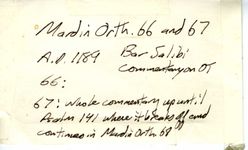 Mardin Orth. 66 and 67
A.D. 1189 Bar Salibi
Commentary on OT
66:
67: whole commentary up until
Psalm 141 where it breaks off and
continues in Mardin Orth 68